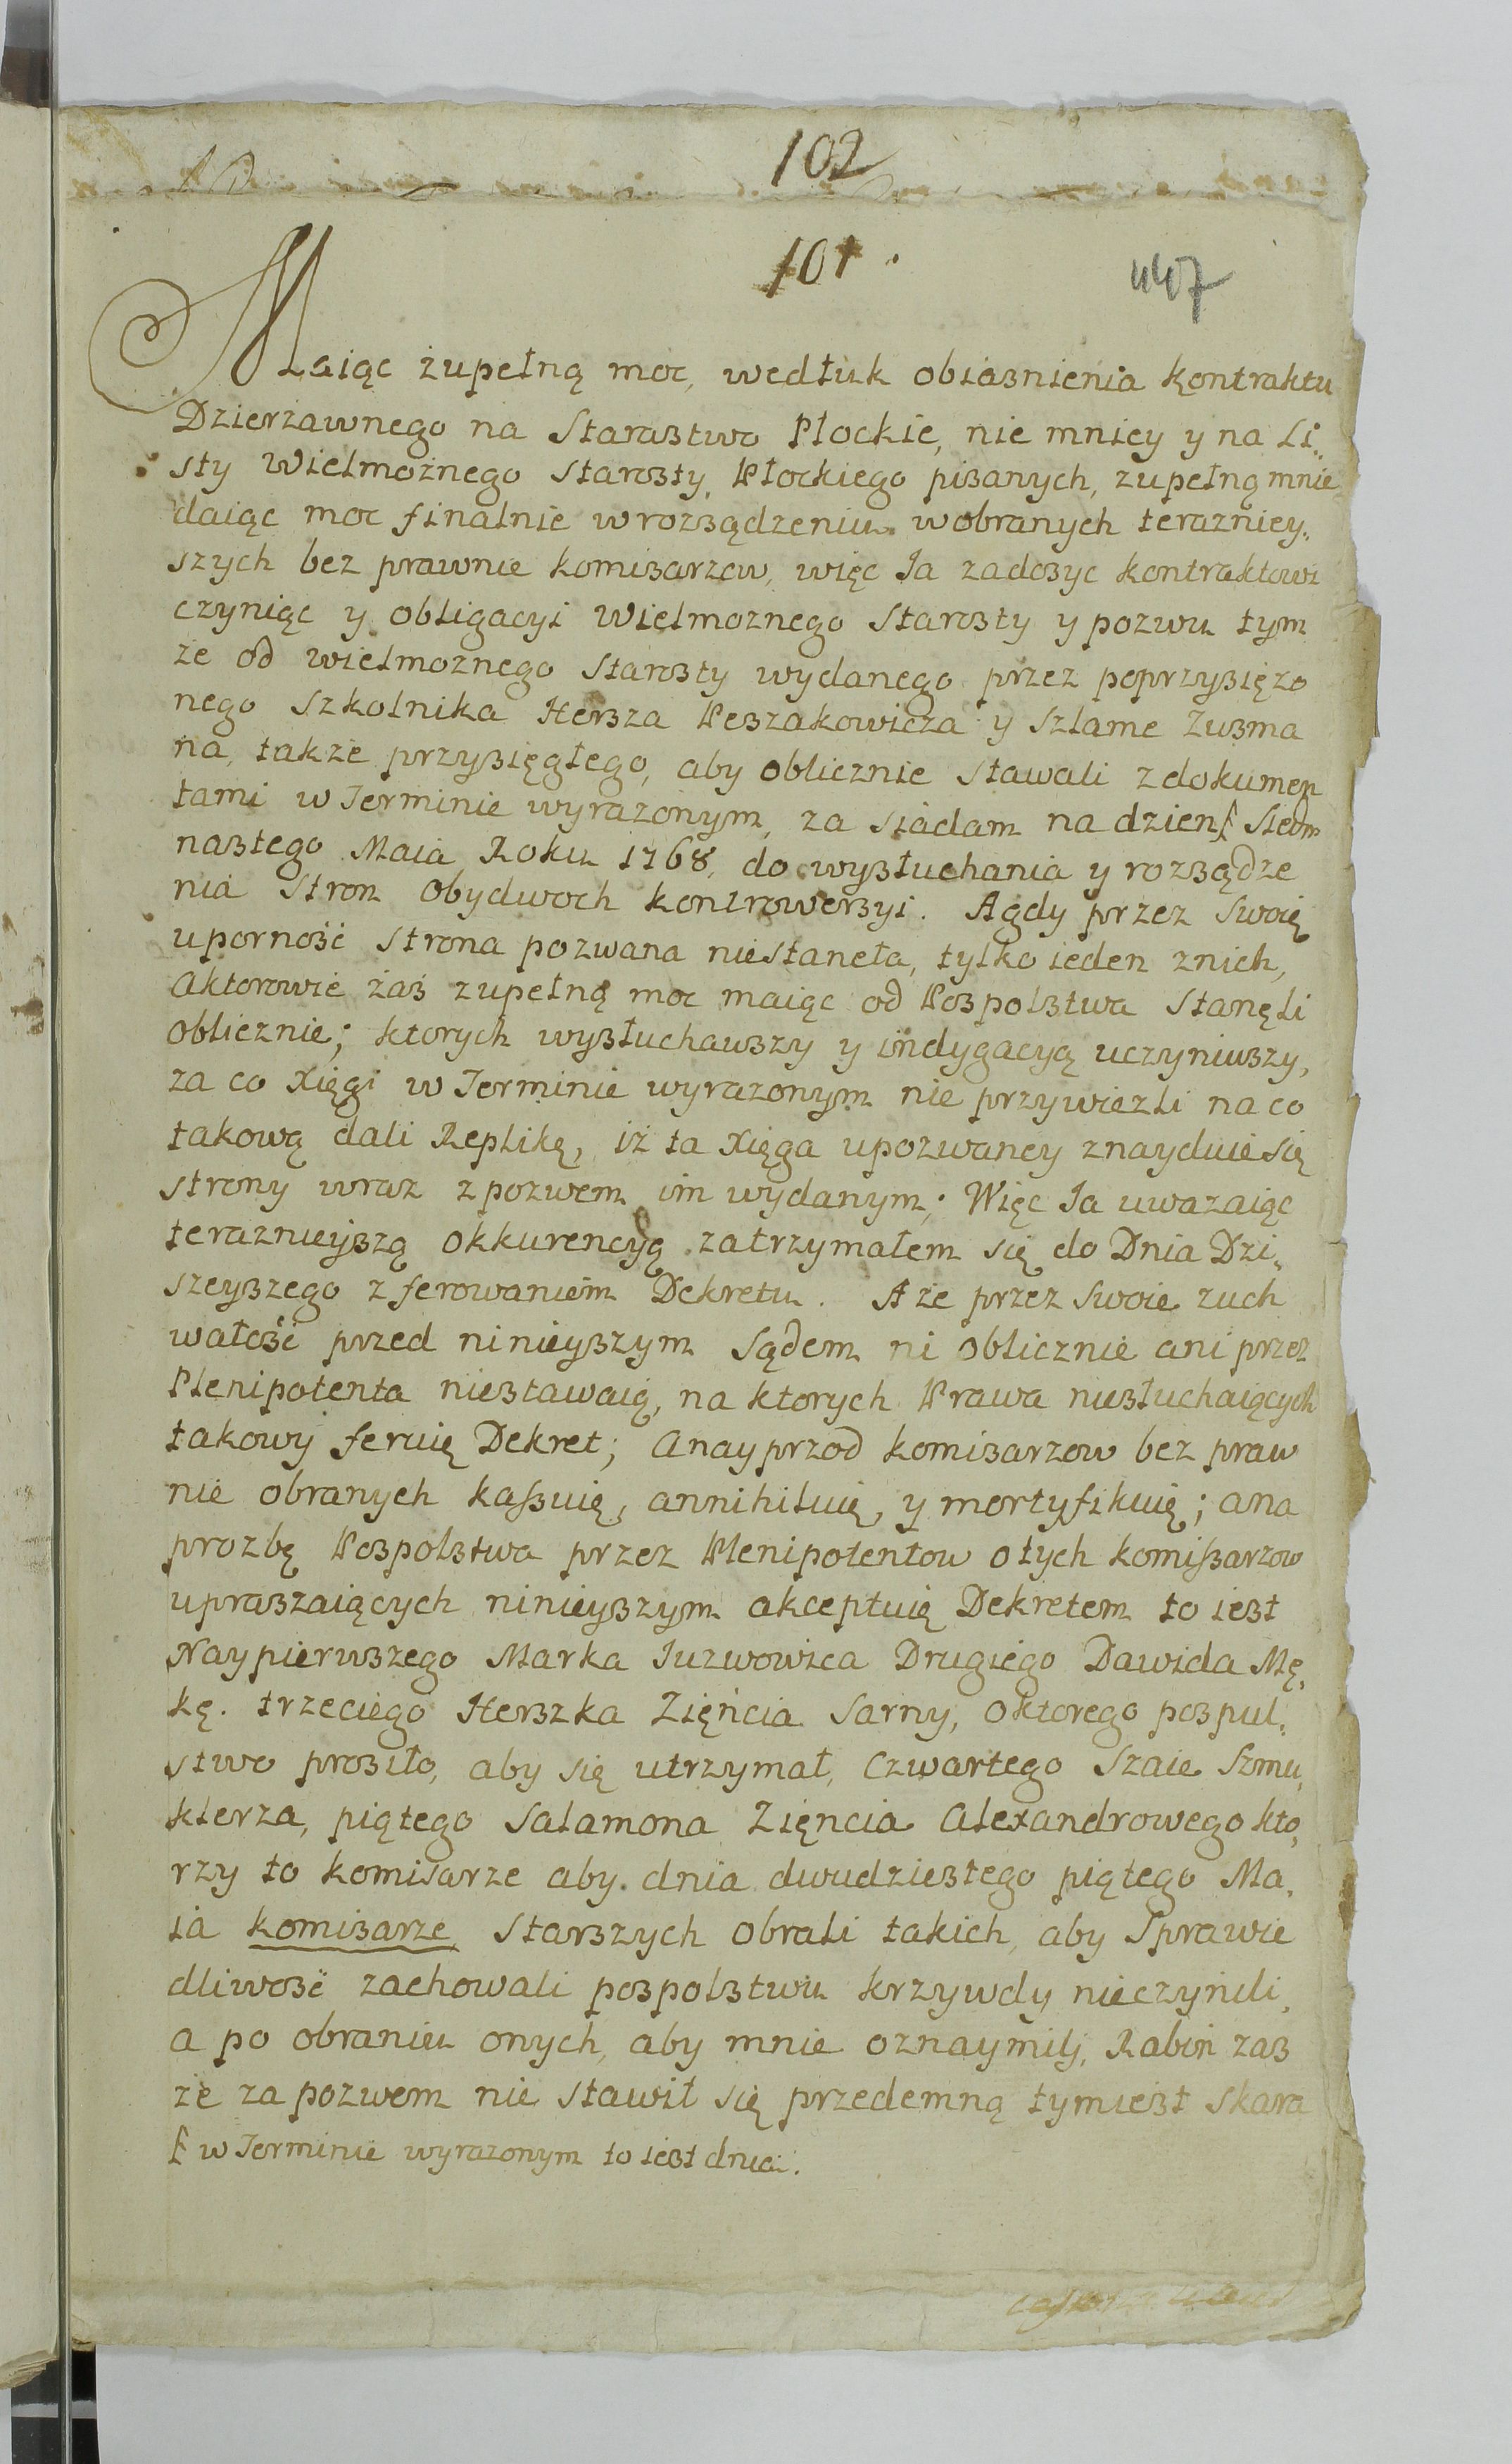 102
101.
447
Maiąc zupełną moc, wedłuk obiasnienia kontraktu
Dzierzawnego na Starastwo Płockie, nie mniey y na Li„
sty Wielmożnego Starosty Płockiego pisanych, zupełną mnie
daiąc moc finalnie w rozsądzeniu wobranych terazniey„
szych bez prawnie komisarzow, więc Ia zadosyc kontraktowi
czyniąc y obligacyi Wielmoznego Starosty y pozwu tym
ze od wielmoznego Starosty wydanego przez poprzysięzo
nego Szkolnika Hersza Peszakowicza y Szlame Zusma
na, takze przysięgłego, aby oblicznie stawali z dokumen
tami w Terminie wyrazonym, za siadam na dzien Siedm
nastego Maia Roku 1768, do wysłuchania y rozsądze
nia Stron obydwoch kontrowersyi. Agdy przez Swoię
uporność Strona pozwana niestaneła, tylko ieden znich,
Aktorowie zaś zupełną moc maiąc od Pospolstwa Stanęli
oblicznie; ktorych wysłuchawszy y indygacyą uczyniwszy,
za co Xięgi w Terminie wyrazonym nie przywiezli na co
takową dali Replikę, iż ta Xięga upozwaney znayduie się
strony wraz z pozwem im wydanym; Więc Ia uwazaiąc
teraznieyszą okkurencyą zatrzymałem się do Dnia Dzi„
szeyszego z ferowaniem Dekretu. A że przez Swoie zuch
wałość przed ninieyszym Sądem ni oblicznie ani przez
Plenipotenta niestawaią, na ktorych Prawa niesłuchaiących
takowy feruię Dekret; Anayprzod komisarzow bez praw
nie obranych kassuię, annihiluię, y mortyfikuię; ana
prozbę Pospolstwa przez Plenipotentow otych komissarzow
upraszaiących ninieyszym akceptuię Dekretem to iest
Naypierwszego Marka Iuzwowica Drugiego Dawida Mę„
kę. trzeciego Herszka Zięńcia Sarny, oktorego pospul„
stwo prosiło, aby się utrzymał, Czwartego Szaie Szmu„
klerza, piątego Salamona Zięncia Alexandrowego kto„
rzy to komisarze aby dnia dwudziestego piątego Ma„
ia komisarze Starszych obrali takich, aby Sprawie
dliwość zachowali pospolstwu krzywdy nieczynili,
a po obraniu onych, aby mnie oznaymili, Rabin zas
ze za pozwem nie stawił się przedemną tymiest skara
w Terminie wyrazonym to iest dnia.